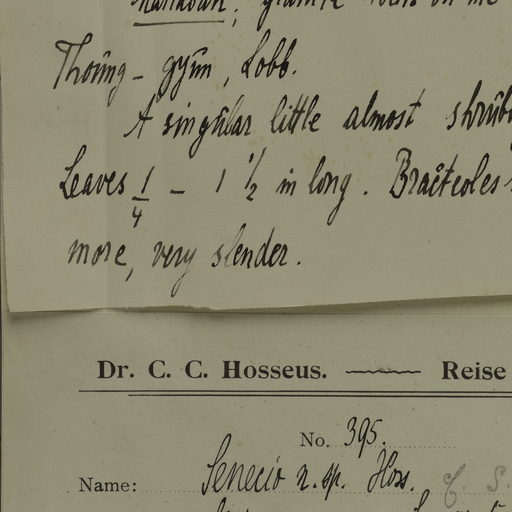 granite rocks on the
Thoung-gyun, Lobb.
A singular little almost shrub
Leaves 1/4 – 1 1/2 in long. Bracteoles
more, very slender.
Dr. C. C. Hosseus. Reise
No. 395.
Name: Senecio n. sp. Hoss. C. S.